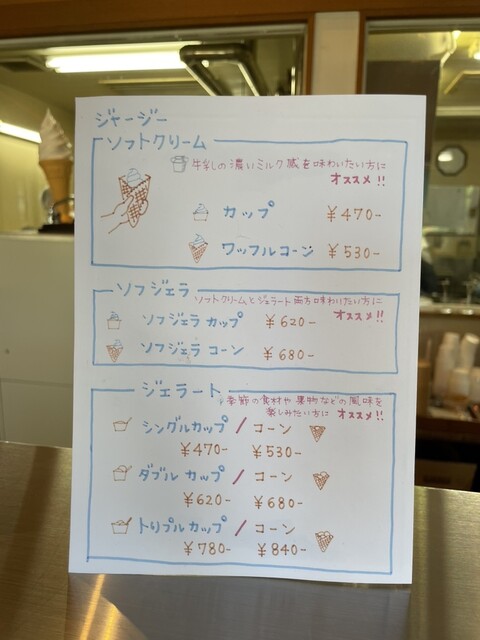 ジャージー
ソフトクリーム
牛乳の濃いミルク感を味わいたい方に
オススメ!!
カップ ¥470-
ワッフルコーン ¥530-
ソフジェラ
ソフトクリームとジェラート両方味わいたい方に
オススメ!!
ソフジェラ カップ ¥620-
ソフジェラ コーン ¥680-
ジェラート
季節の食材や果物などの風味を
楽しみたい方に オススメ!!
シングルカップ / コーン
¥470- ¥530-
ダブルカップ / コーン
¥620- ¥680-
トリプルカップ / コーン
¥780- ¥840-